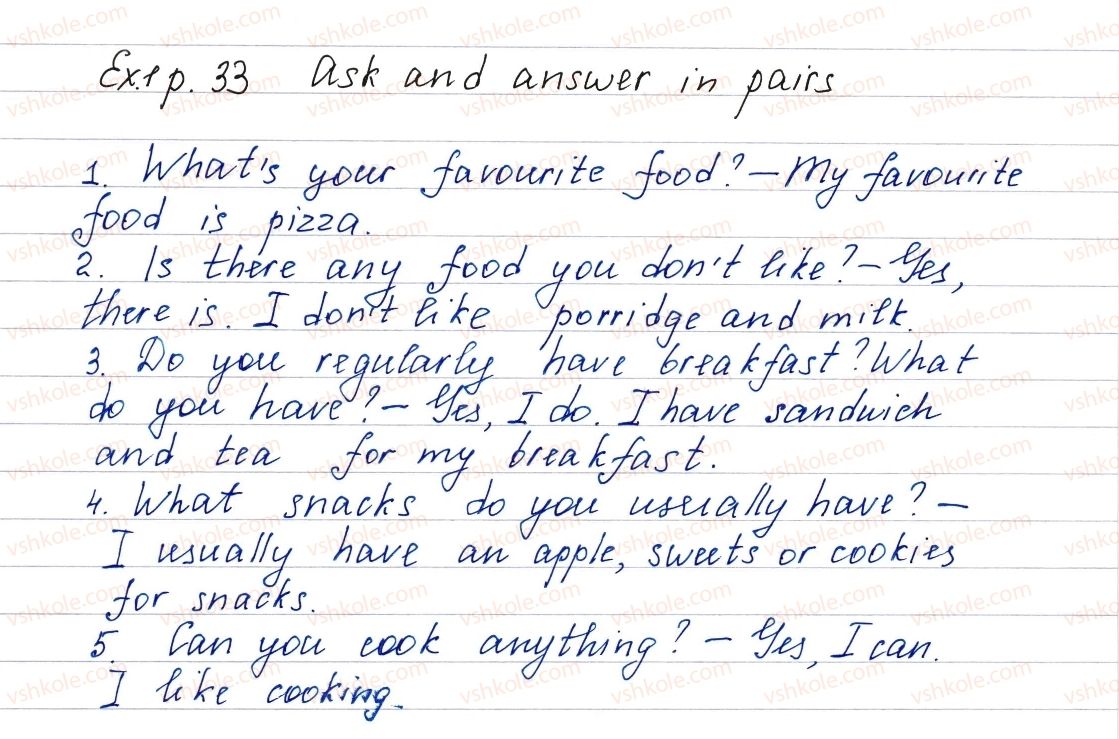 Ex.1 p. 33 Ask and answer in pairs
1. What's your favourite food? – My favourite
food is pizza.
2. Is there any food you don't like? – Yes,
there is. I don't like porridge and milk.
3. Do you regularly have breakfast? What
do you have? – Yes, I do. I have sandwich
and tea for my breakfast.
4. What snacks do you usually have? –
I usually have an apple, sweets or cookies
for snacks.
5. Can you cook anything? – Yes, I can.
I like cooking.
vshkole.com